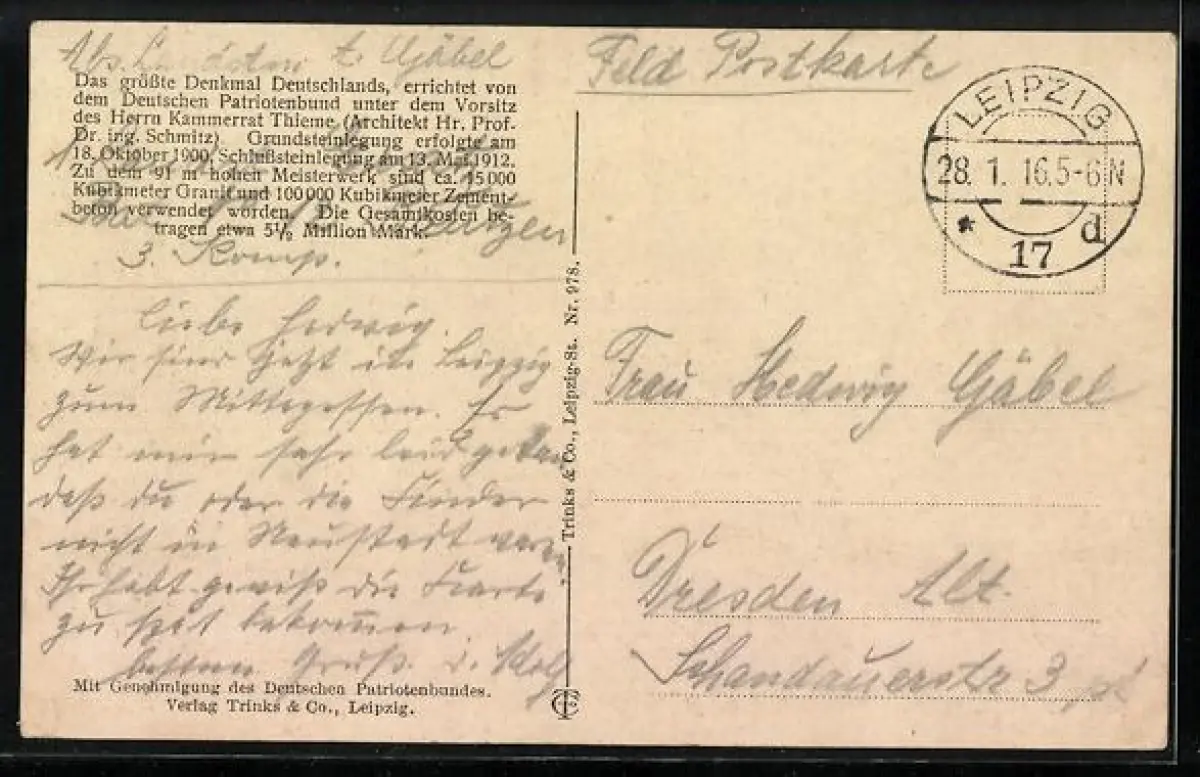 Abs. t. Gäbel
Das größte Denkmal Deutschlands, errichtet von
dem Deutschen Patriotenbund unter dem Vorsitz
des Herrn Kammerrat Thieme (Architekt Hr. Prof.
Dr. ing. Schmitz). Grundsteinlegung erfolgte am
18. Oktober 1900, Schlußsteinlegung am 13. Mai 1912.
Zu dem 91 m hohen Meisterwerk sind ca. 15000
Kubikmeter Granit und 100000 Kubikmeter Zement-
beton verwendet worden. Die Gesamtkosten be-
tragen etwa 5½ Million Mark.
3. Komp.
Liebe Hedwig.
Wir sind jetzt in Leipzig
zum Mittagessen. Es
hat mir sehr leid getan
daß du oder die Kinder
nicht in Neustadt waren
Ihr habt gewiß die Karte
zu spät bekommen.
besten Gruß. d. Adolf
Mit Genehmigung des Deutschen Patriotenbundes.
Verlag Trinks & Co., Leipzig.
Trinks & Co., Leipzig-St. Nr. 978.
Feld Postkarte
LEIPZIG
28. 1. 16. 5-6 N
* 17 d
Frau Hedwig Gäbel
Dresden Alt.
Schandauerstr 3